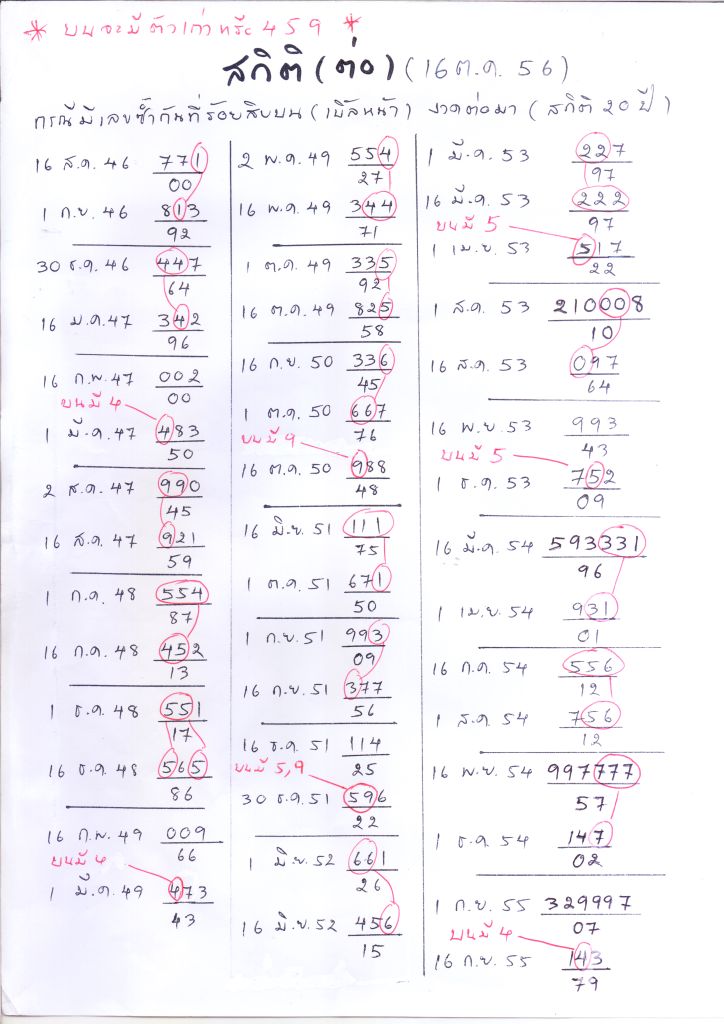 * บนจะมีตัวเก่าหรือ 4 5 9 *
สถิติ (ต่อ) (16 ต.ค. 56)
กรณีมีเลขซ้ำกันที่ร้อยสิบบน (เบิ้ลหน้า) งวดต่อมา (สถิติ 20 ปี)
16 ส.ค. 46 771
00
1 ก.ย. 46 813
92
30 ธ.ค. 46 447
64
16 ม.ค. 47 342
96
16 ก.พ. 47 002
00
บนมี 4
1 มี.ค. 47 483
50
2 ส.ค. 47 990
45
16 ส.ค. 47 921
59
1 ก.ค. 48 554
87
16 ก.ค. 48 452
13
1 ธ.ค. 48 551
17
16 ธ.ค. 48 565
86
16 ก.พ. 49 009
66
บนมี 4
1 มี.ค. 49 473
43
2 พ.ค. 49 554
27
16 พ.ค. 49 344
71
1 ต.ค. 49 335
92
16 ต.ค. 49 825
58
16 ก.ย. 50 336
45
1 ต.ค. 50 667
76
บนมี 9
16 ต.ค. 50 988
48
16 มิ.ย. 51 111
75
1 ต.ค. 51 671
50
1 ก.ย. 51 993
09
16 ก.ย. 51 377
56
16 ธ.ค. 51 114
25
บนมี 5,9
30 ธ.ค. 51 596
22
1 มิ.ย. 52 661
26
16 มิ.ย. 52 456
15
1 มี.ค. 53 227
97
16 มี.ค. 53 222
97
บนมี 5
1 เม.ย. 53 517
22
1 ส.ค. 53 210008
10
16 ส.ค. 53 097
64
16 พ.ย. 53 993
43
บนมี 5
1 ธ.ค. 53 752
09
16 มี.ค. 54 593331
96
1 เม.ย. 54 931
01
16 ก.ค. 54 556
12
1 ส.ค. 54 756
12
16 พ.ย. 54 997777
57
1 ธ.ค. 54 147
02
1 ก.ย. 55 329997
07
บนมี 4
16 ก.ย. 55 143
79